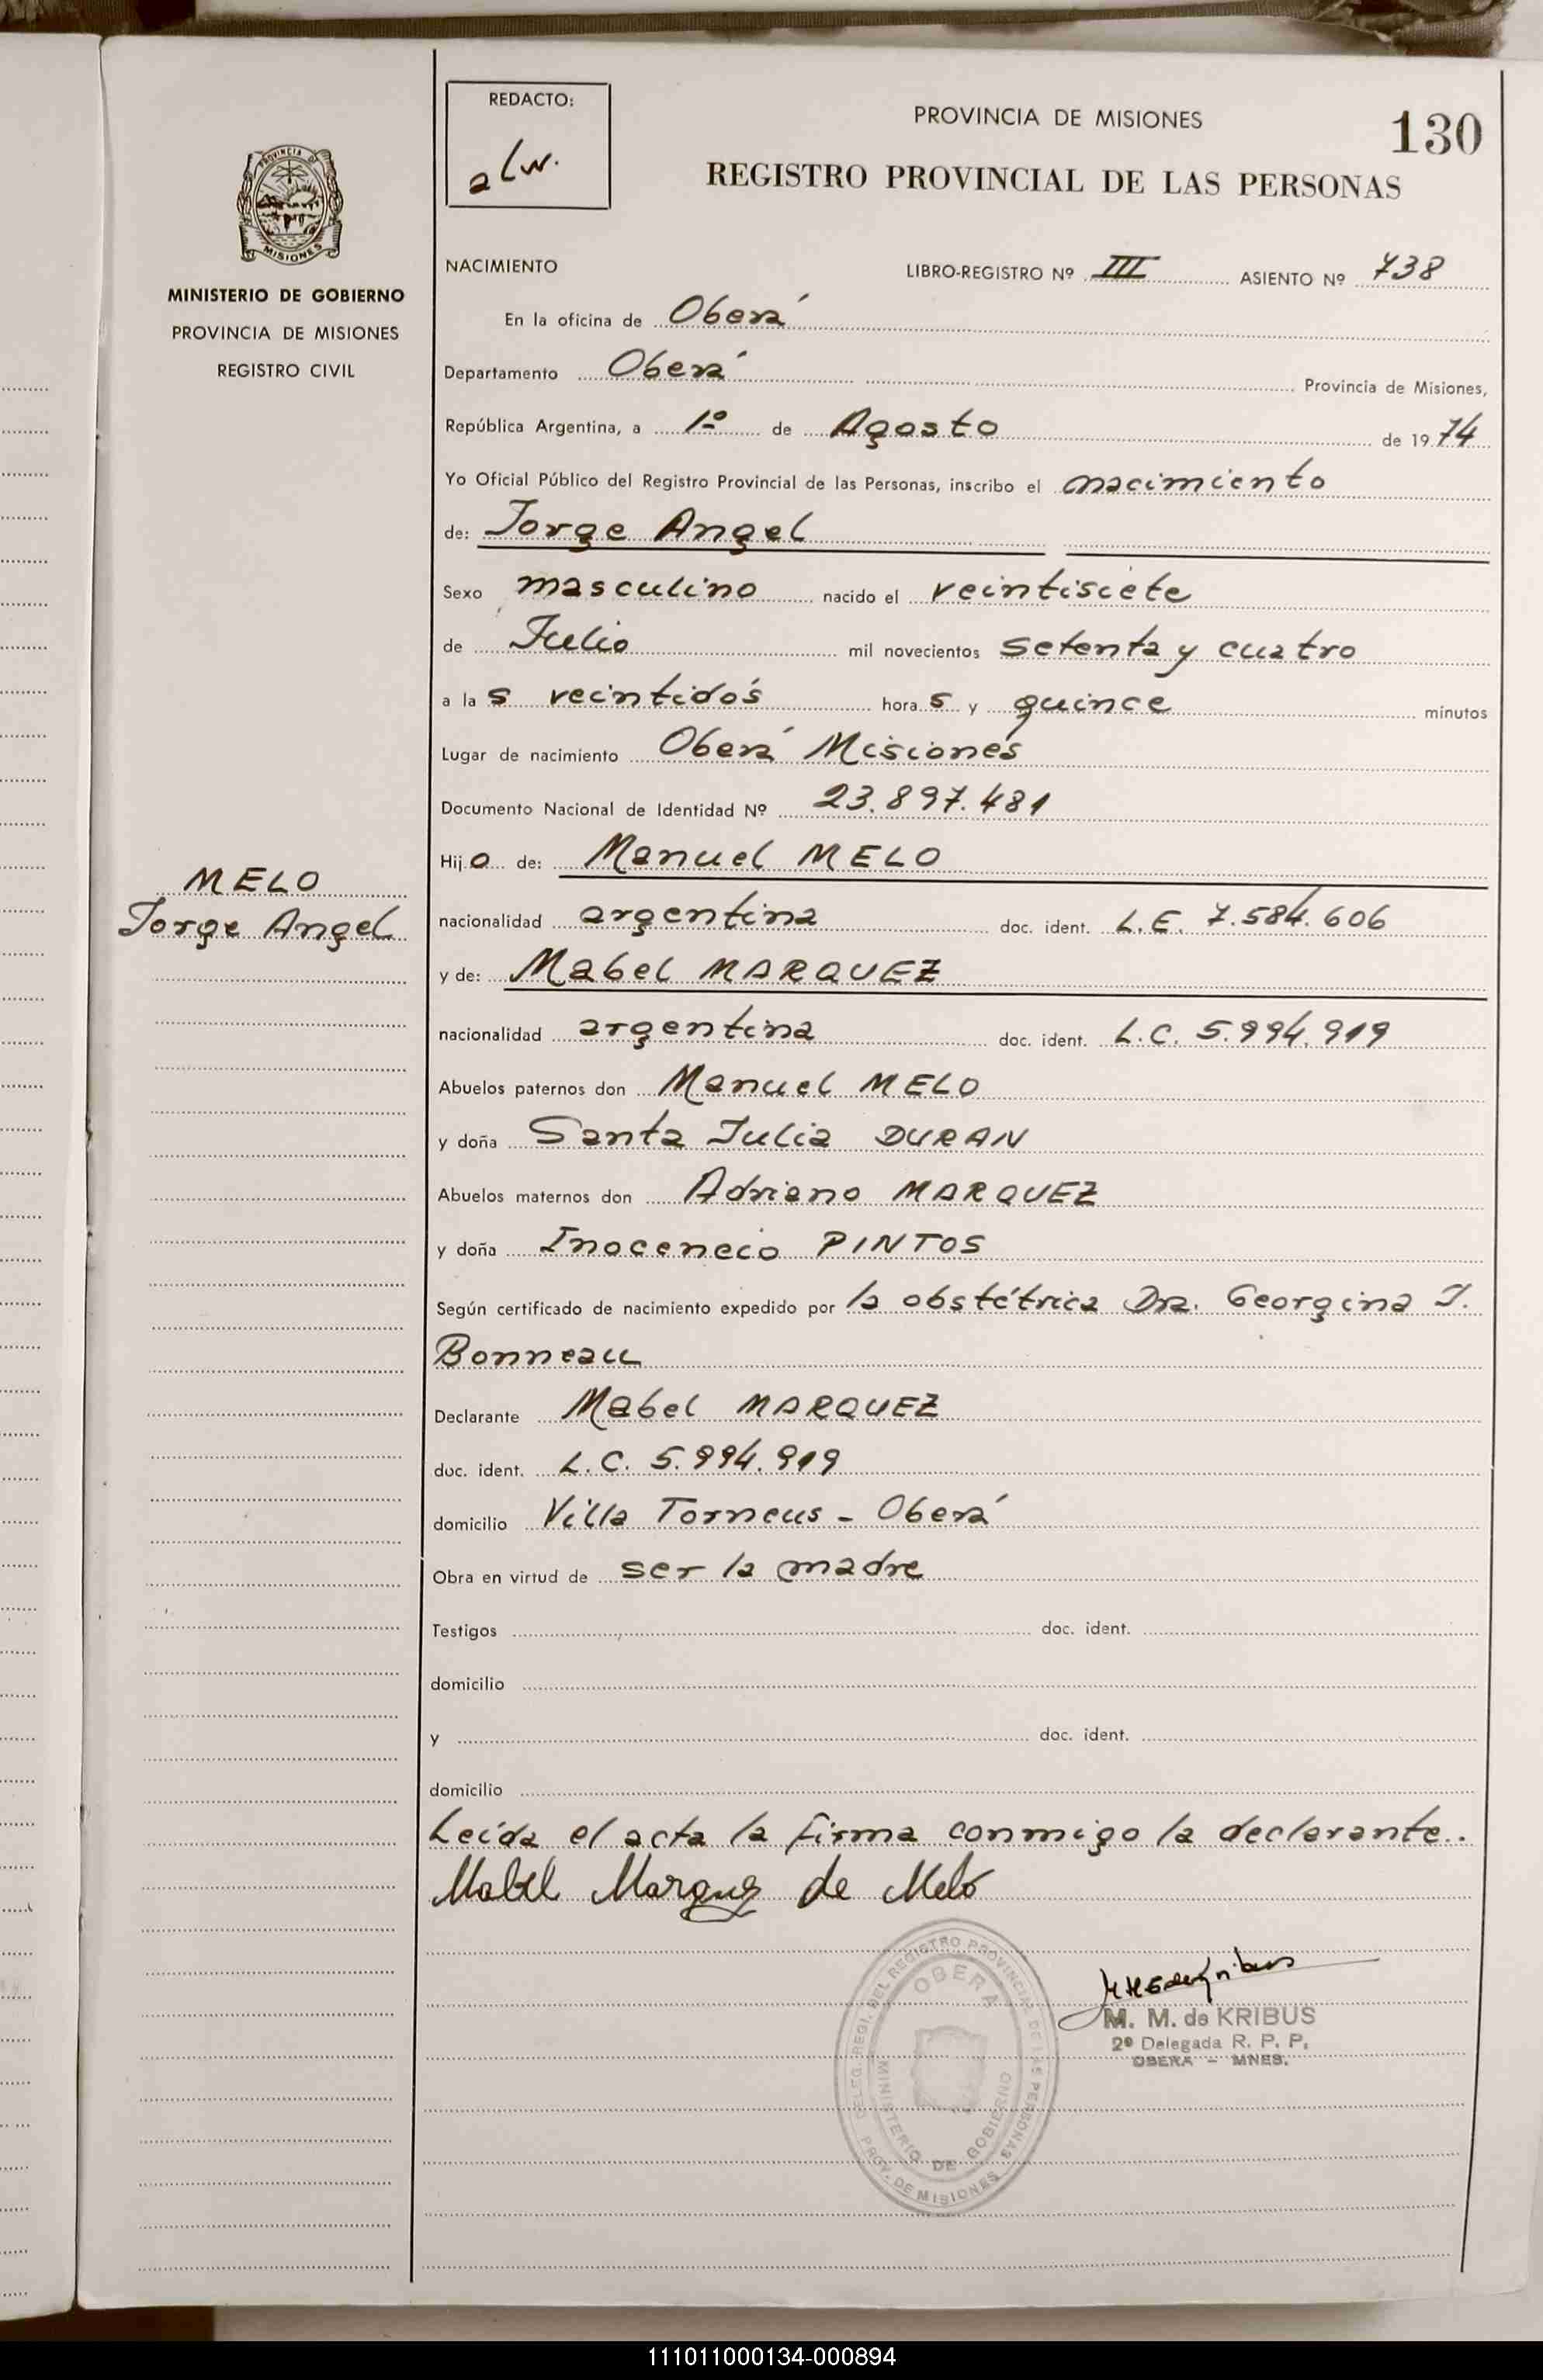 REDACTO:
alw.
PROVINCIA DE MISIONES
130
REGISTRO PROVINCIAL DE LAS PERSONAS
PROVINCIA DE
MISIONES
MINISTERIO DE GOBIERNO
PROVINCIA DE MISIONES
REGISTRO CIVIL
NACIMIENTO LIBRO-REGISTRO Nº III ASIENTO Nº 738
En la oficina de Oberá
Departamento Oberá Provincia de Misiones,
República Argentina, a 1º de Agosto de 1974
Yo Oficial Público del Registro Provincial de las Personas, inscribo el nacimiento
de: Jorge Angel
Sexo masculino nacido el veintisiete
de Julio mil novecientos setenta y cuatro
a las veintidós horas y quince minutos
Lugar de nacimiento Oberá Misiones
Documento Nacional de Identidad Nº 23.897.481
Hijo de: Manuel MELO
MELO
Jorge Angel
nacionalidad argentina doc. ident. L.E. 7.584.606
y de: Mabel MARQUEZ
nacionalidad argentina doc. ident. L.C. 5.994.919
Abuelos paternos don Manuel MELO
y doña Santa Julia DURAN
Abuelos maternos don Adriano MARQUEZ
y doña Inocencio PINTOS
Según certificado de nacimiento expedido por la obstétrica Dra. Georgina J.
Bonneau
Declarante Mabel MARQUEZ
doc. ident. L.C. 5.994.919
domicilio Villa Torneus - Oberá
Obra en virtud de ser la madre
Testigos doc. ident.
domicilio
y doc. ident.
domicilio
Leída el acta la firma conmigo la declarante.
Mabel Marquez de Melo
DELEG. REGI. DEL REGISTRO PROVINCIAL DE LAS PERSONAS
OBERA
MINISTERIO DE GOBIERNO
PROV. DE MISIONES
M. M. de KRIBUS
2º Delegada R. P. P.
OBERA - MNES.
111011000134-000894